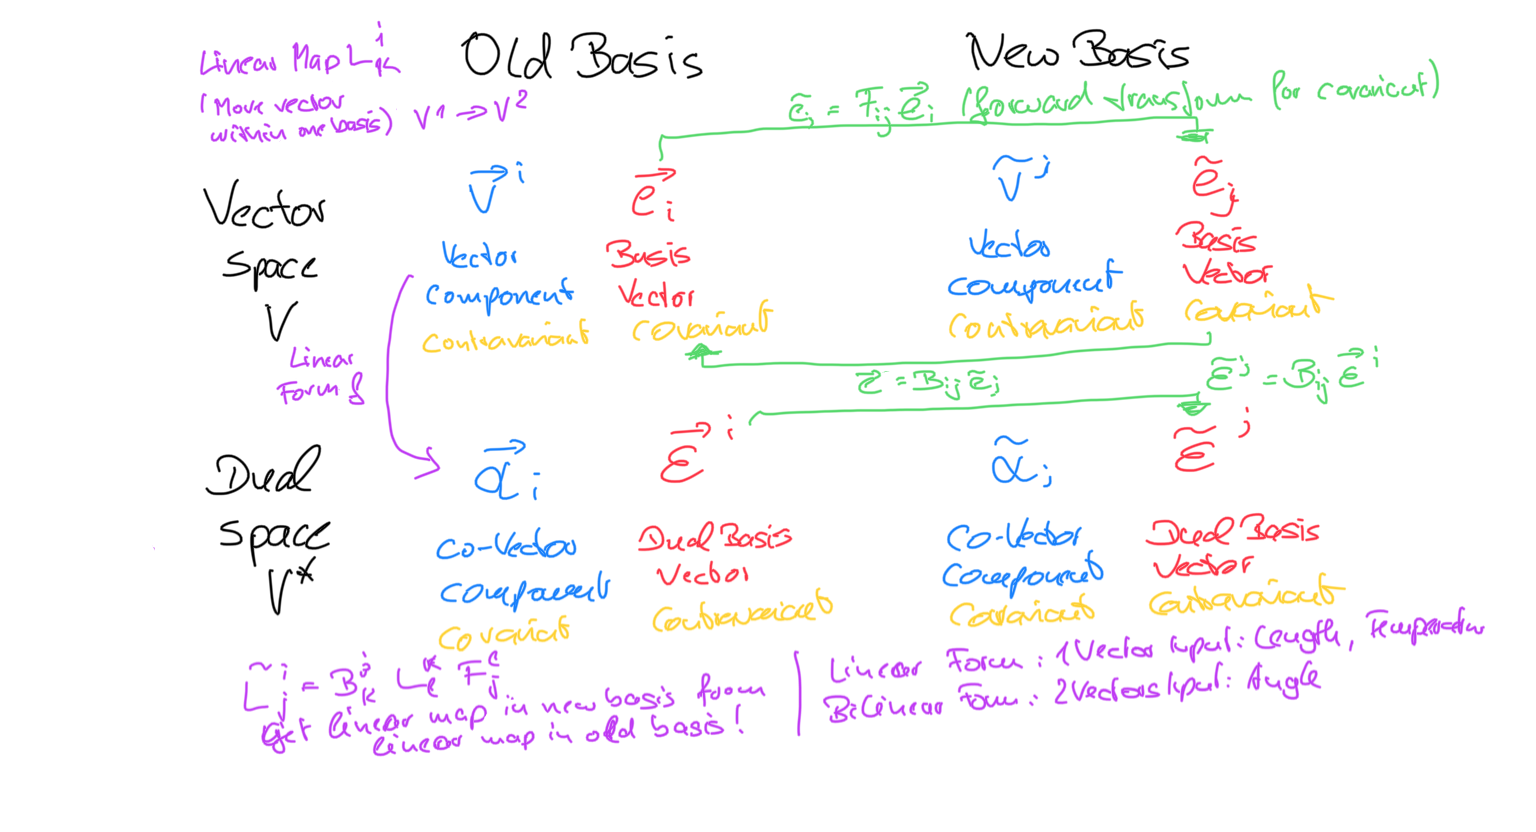 Linear Map L^i_k
Old Basis
New Basis
(Move vector
within one basis) V1 → V2
ẽ_j = F_ij e⃗_i (forward transform for covariant)
Vector
Space
V
v⃗^i
e⃗_i
ṽ^j
ẽ_j
Vector
Component
Contravariant
Basis
Vector
Covariant
Vector
Component
Contravariant
Basis
Vector
Covariant
Linear
Form
e⃗ = B_ij ẽ_j
ε̃^j = B_ij ε⃗^i
Dual
Space
V*
α⃗_i
ε⃗^i
α̃_j
ε̃^j
Co-Vector
Component
Covariant
Dual Basis
Vector
Contravariant
Co-Vector
Component
Covariant
Dual Basis
Vector
Contravariant
L̃^i_j = B^i_k L^k_l F^l_j
Get linear map in new basis from
linear map in old basis!
Linear Form: 1 Vector Input: Length, Temperatur
BiLinear Form: 2 Vectors Input: Angle